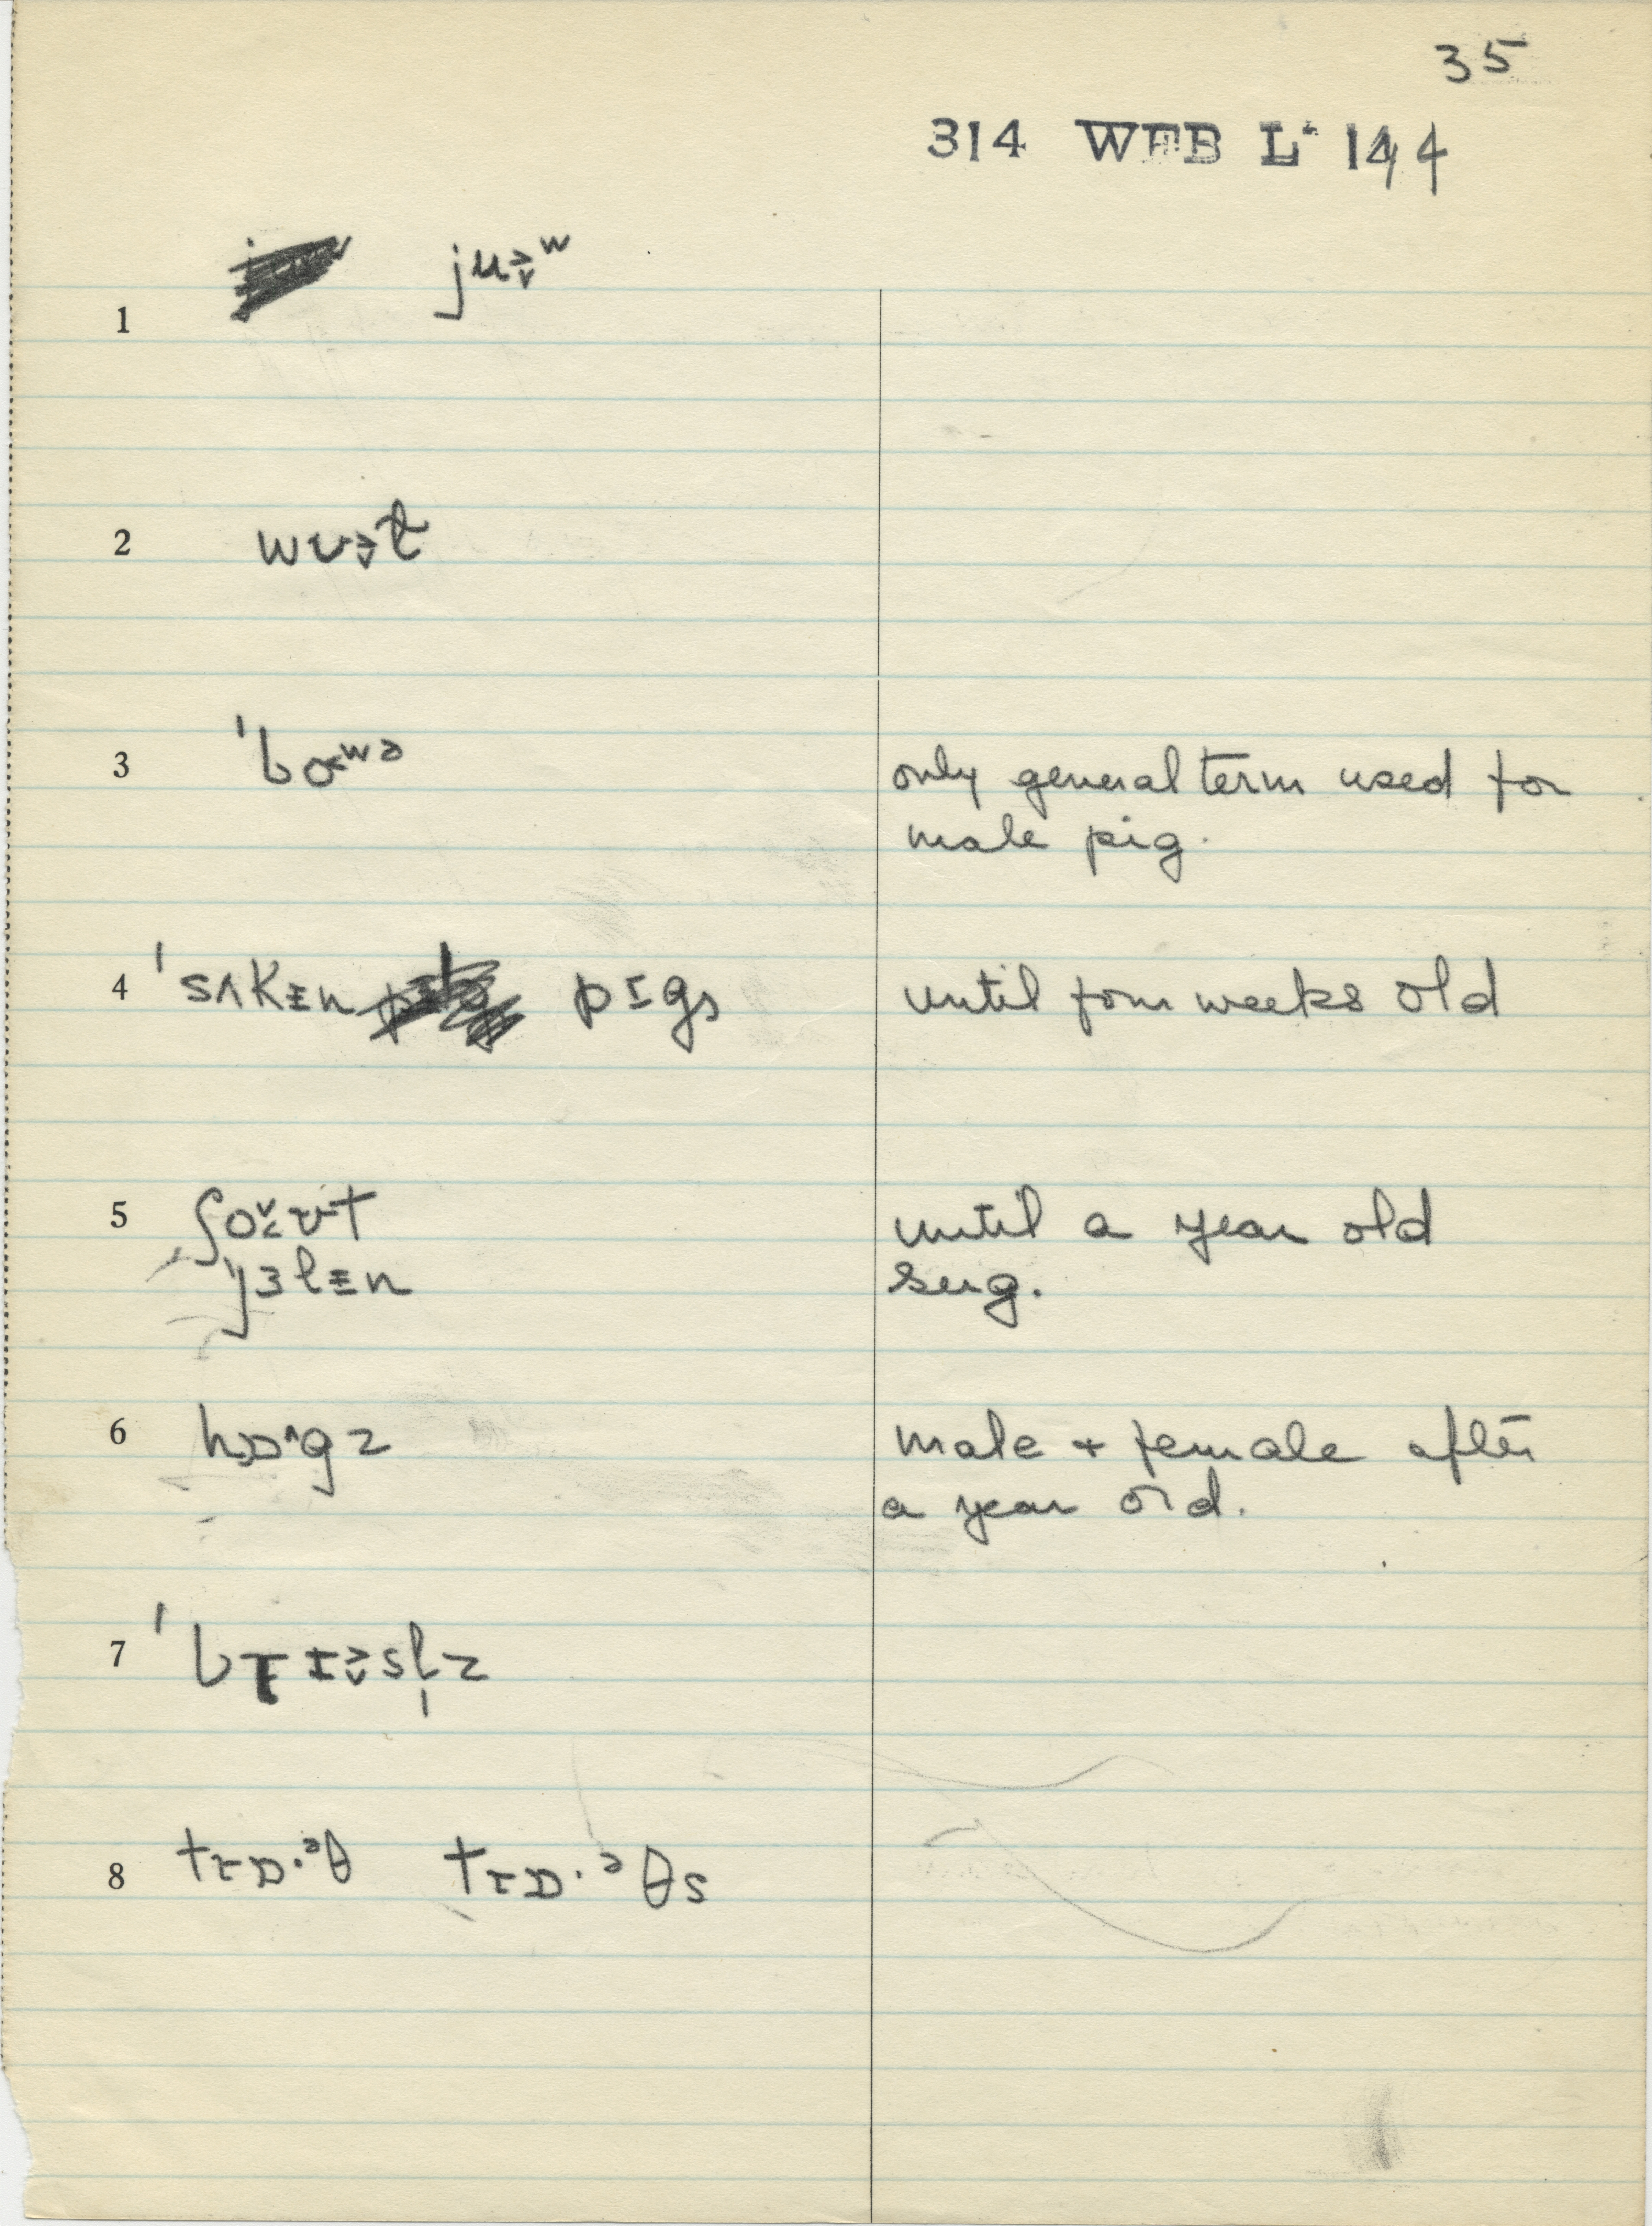 35
314 WEB L· 144
1 ju˃˅ʷ
2 wʊ˃˅t̬
3 ˈbɑʷə only general term used for
male pig.
4 ˈsʌkɪn pɪgs until four weeks old
5 ʃo˅˂ʊt until a year old
ˈjɜlɪn sug.
6 hɒ^gz male + female after
a year old.
7 ˈbrɪ˃˅sl̩z
8 trɒ·ᵊθ trɒ·ᵊθs